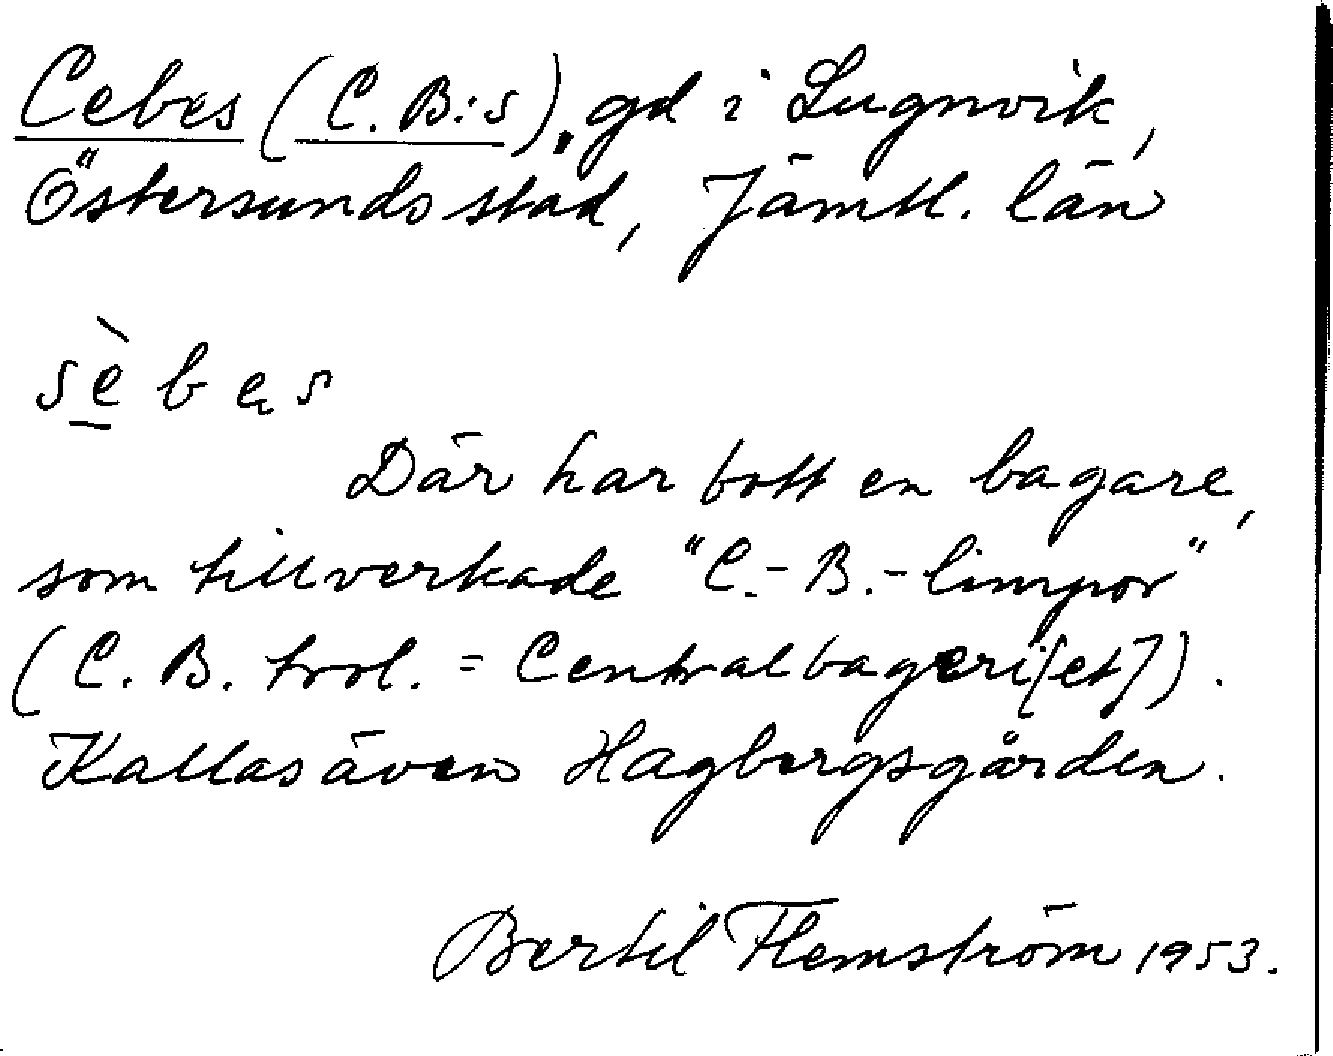 Cebes (C. B:s), gd i Lugnvik,
Östersunds stad, Jämtl. län
sè̲bęs
Där har bott en bagare,
som tillverkade "C.-B.-limpor"
(C. B. trol. = Centralbageri[et]).
Kallas även Hagbergsgården.
Bertil Flemström 1953.